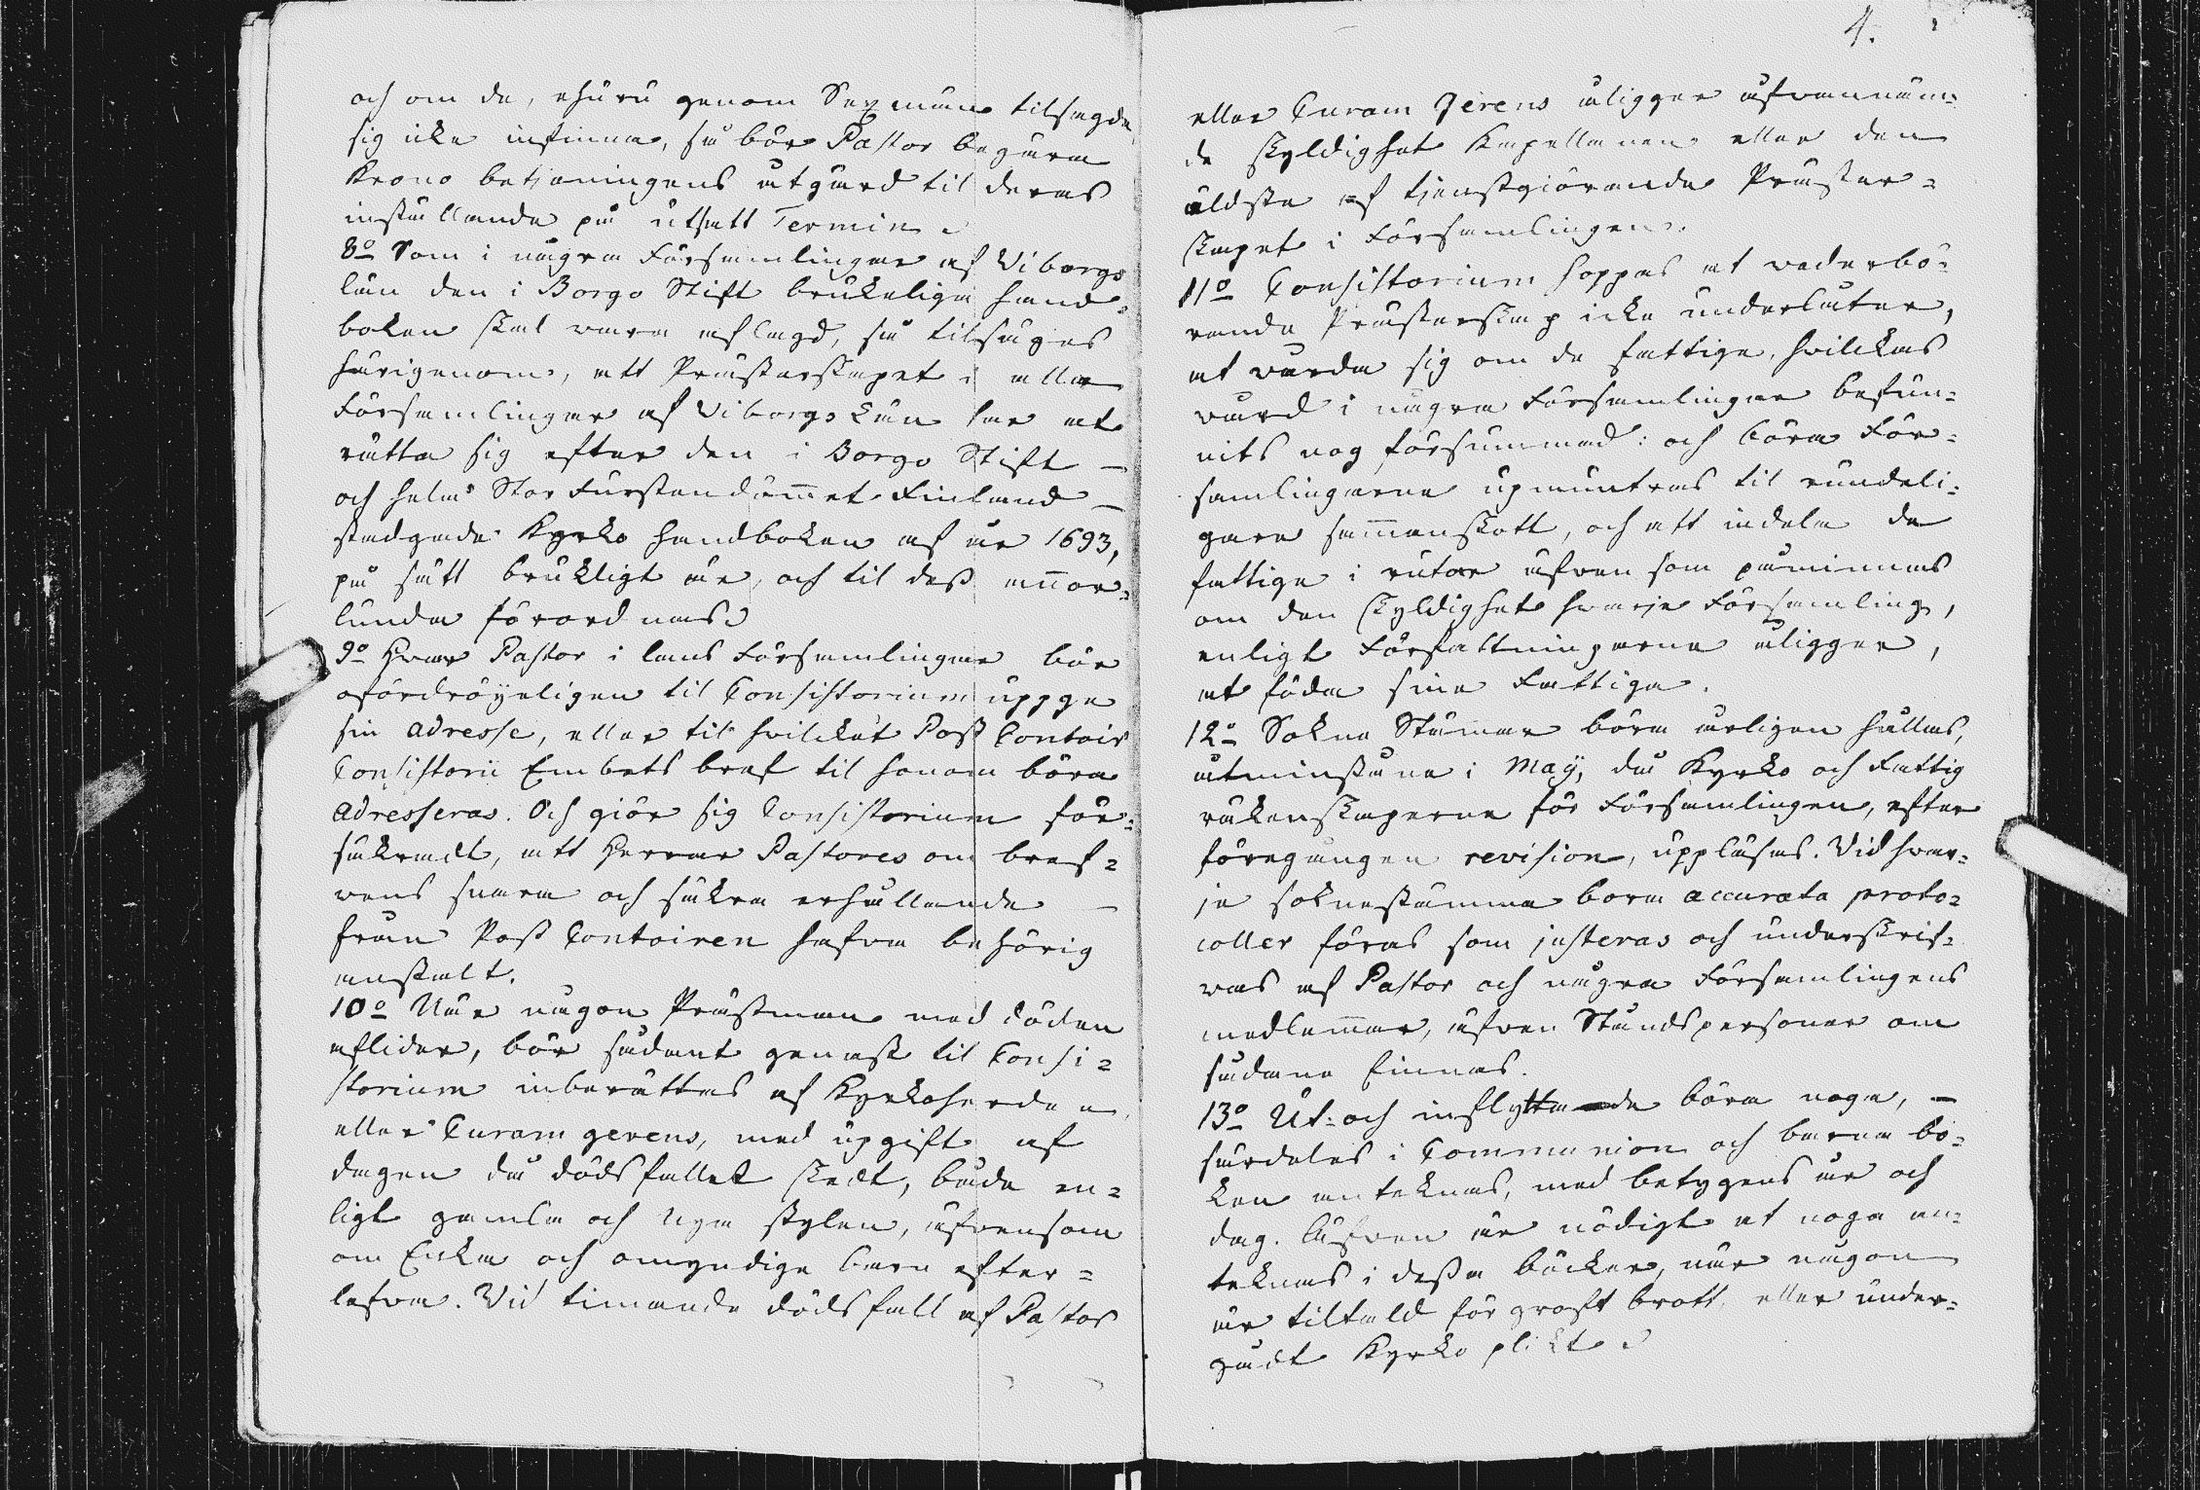 och om de, ehuru genom Sexman tilsagde
sig icke infinna, så bör Pastor begära
Krono betjeningens åtgärd til deras
inställande på utsatt Termin.
8o Som i några Församlingar af Viborgs
län den i Borgo Stift brukeliga hand-
boken skal vara aflagd, så tilsäges
härigenom, att Prästerskapet i alla
Församlingar af Viborgs Län har at
rätta sig efter den i Borgo Stift –
och hela Stor Furstendömet Finland –
stadgade Kyrko handboken af år 1693,
på sätt brukligt är, och til dess annor-
lunda förordnas.
9o Hvar Pastor i lans Församlingar bör
ofördröyeligen til Consistorium uppge
sin adresse, eller til hvilcket Post Contoir
Consistorii Embets bref til honom böra
adresseras. Och giör sig Consistorium för-
säkradt, att Herrar Pastores om bref-
vens snara och säkra erhållande –
från Post Contoiren hafva behörig
anstalt.
10o När någon Prästman med döden
aflider, bör sådant genast til Consi-
storium inberättas af Kyrkoherden
eller Curam gerens, med upgift af
dagen då dödsfallet skedt, både en-
ligt gamla och nya stylen, äfvensom
om Enka och omyndiga barn efter-
lefva. Vid timande dödsfall af Pastor
4.
eller Curam gerens åligger äfvannäm-
de skyldighet Kapellanen eller den
äldste af tjenstgiörande Präster-
skapet i Församlingen.
11o Consistorium hoppas at vederbö-
rande Prästerskap icke underlåter,
at vårda sig om de fattiga, hvilckas
vård i några Församlingar befun-
nits nog försummad: och böra För-
samlingarna upmuntras til rundeli-
gare sammanskott, och att indela de
fattiga i rutar äfven som påminnas
om den skyldighet hvarje Församling,
enligt Författningarna åligger,
at föda sina Fattiga.
12o Sokne Stämmor böra årligen hållas,
åtminstone i Maij, då Kyrko och Fattig
räkenskaperna för Församlingen, efter
föregången revision, uppläsas. Vid hvar-
je soknestämma bora accurata proto-
coller föras som justeras och underskrif-
vas af Pastor och några Församlingens
medlemmar, äfven Ståndspersoner om
sådana finnas.
13o Ut- och inflyttande böra noga, –
särdeles i Communion och barna bö-
ken anteknas, med betygens år och
dag. Äfven är nödigt at noga an-
teknas i dessa böcker, när någon
är tiltald för groft brott, eller under-
gådt Kyrko plikt.